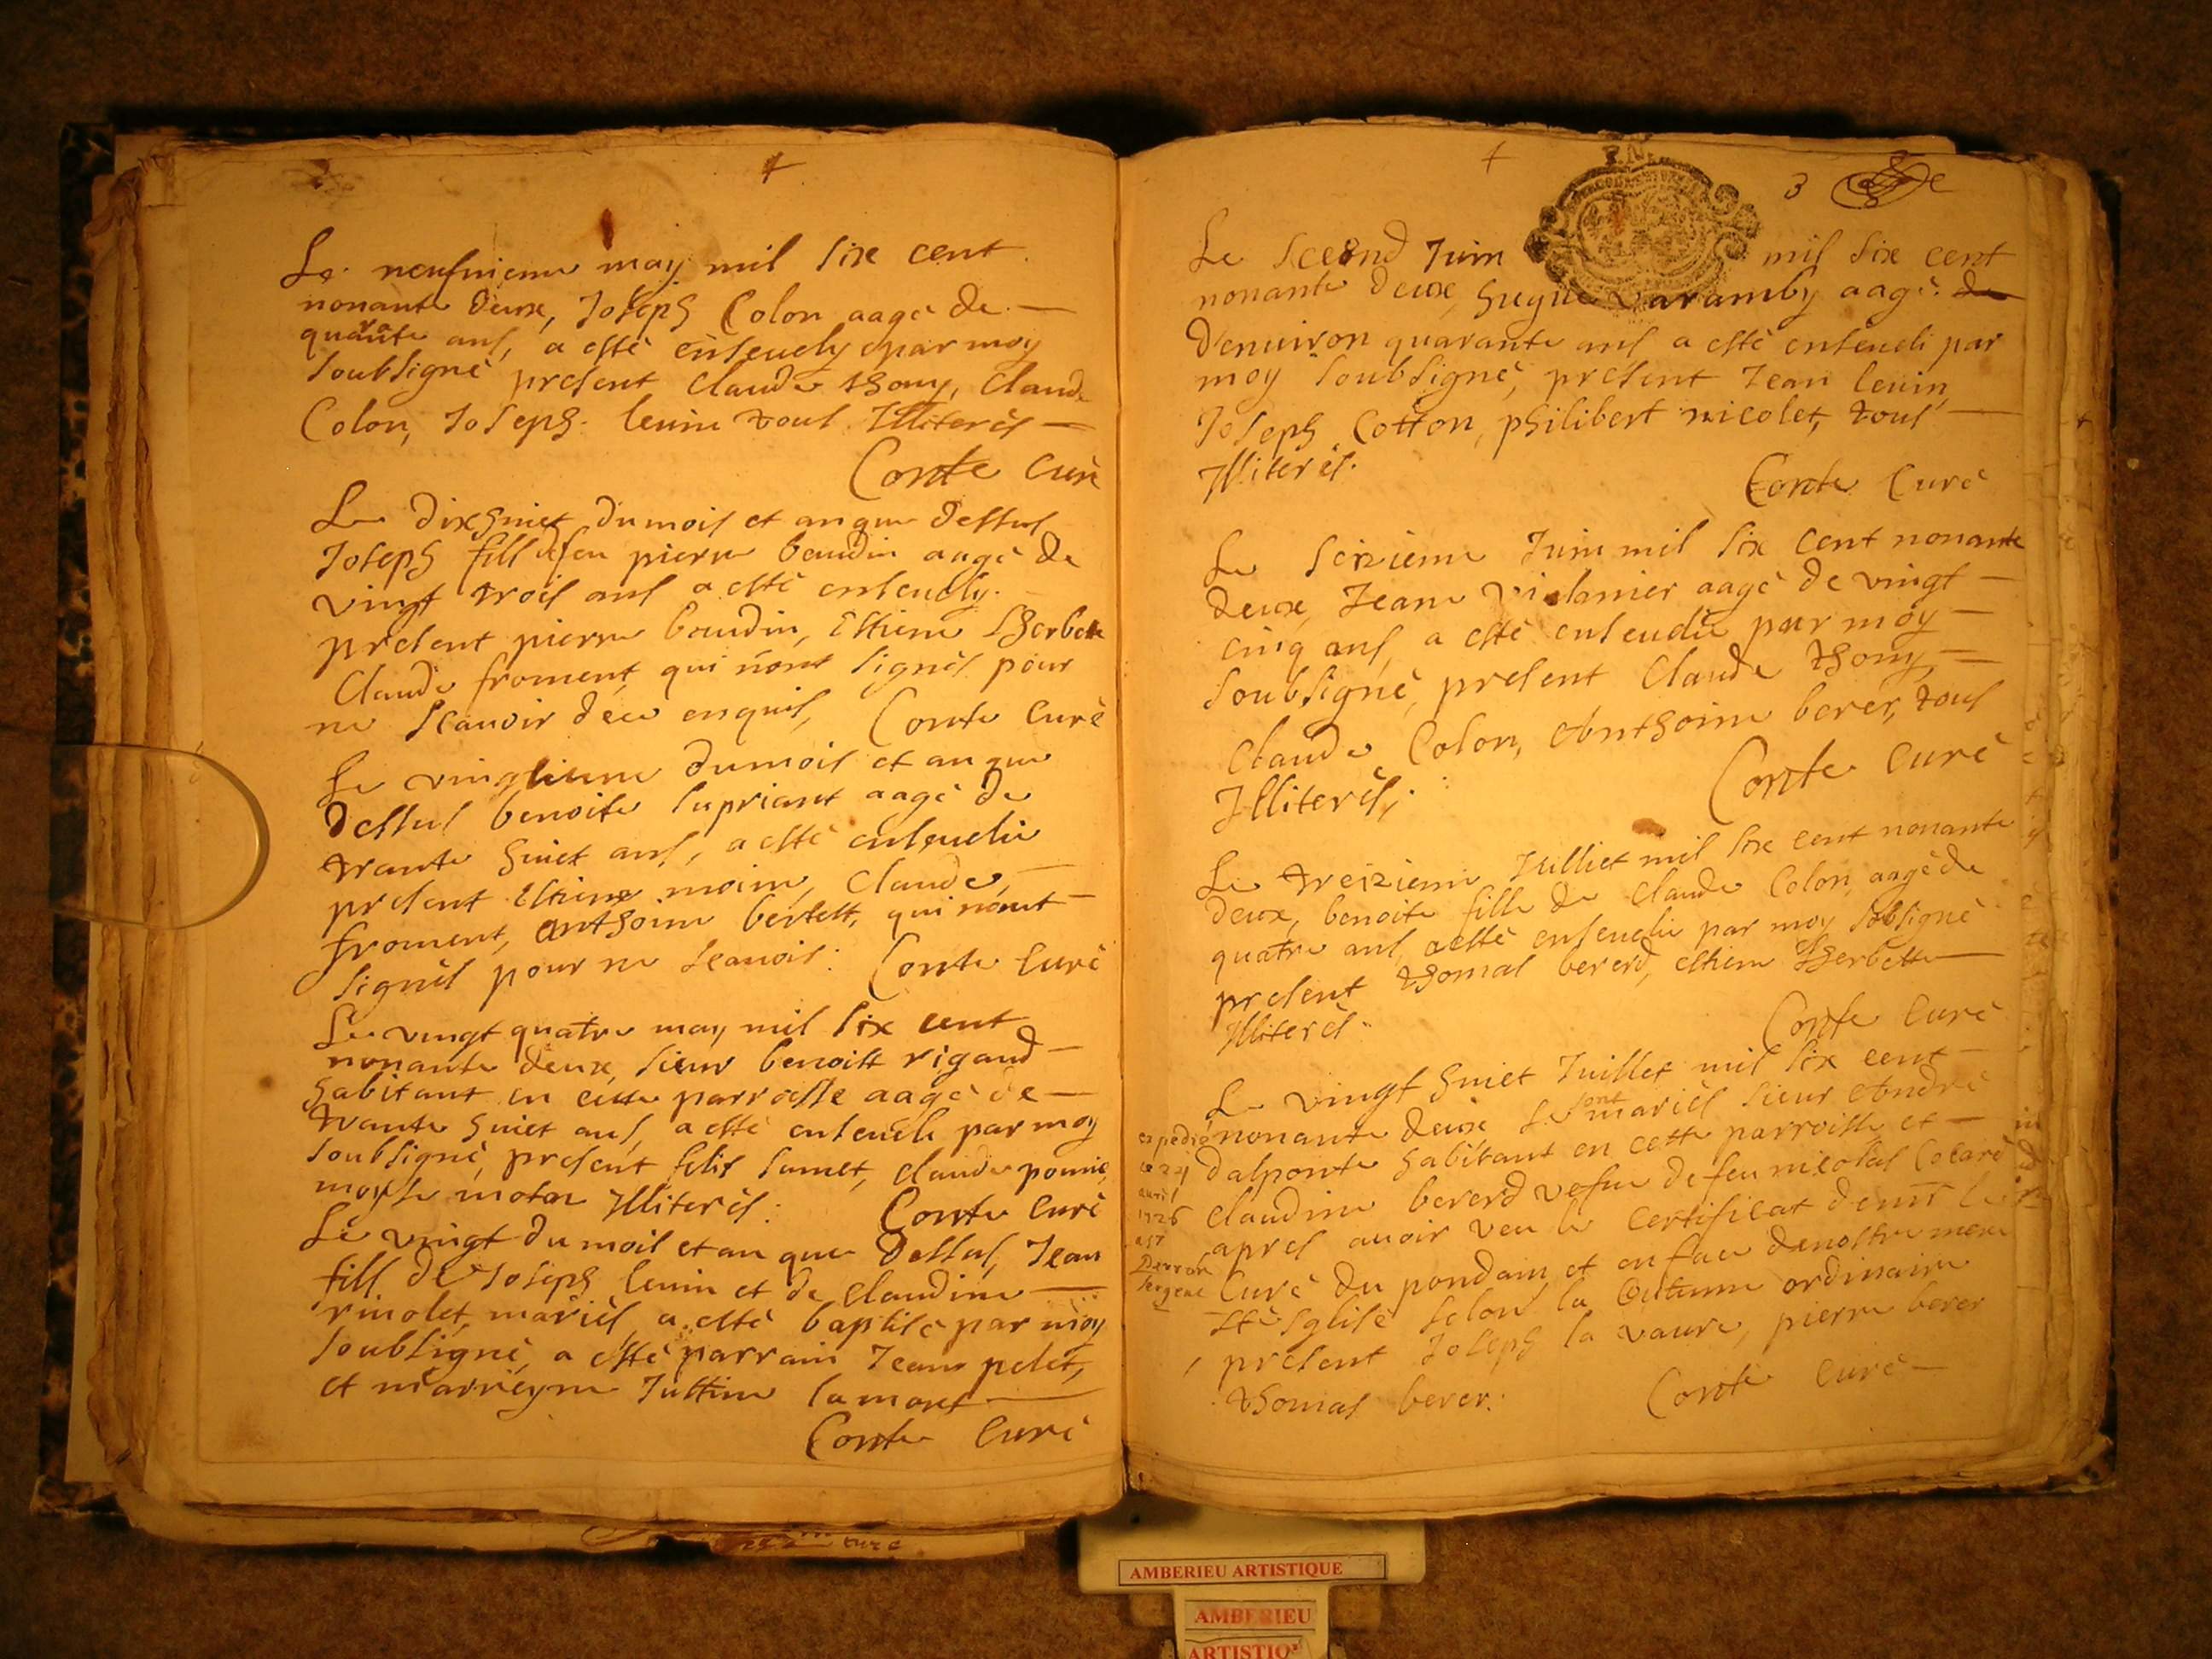 Le neufuieme may mil six cent
nonante deux, Joseph Colon aagé de
quarante ans, a esté enseuely par moy
soubsigné present Claude thony, Claude
Colon, Joseph leuin tous Illiterés
Conte Curé
Le dixhuict du mois et an que dessus
Joseph fill de feu pierre baudin aagé de
vingt trois ans a esté enseuely.
present pierre baudin, Estiene therbette
Claude froment, qui n'ont signés pour
ne scauoir de ce enquis, Conte Curé
Le vingtieme du mois et an que
dessus benoite supriant aagé de
trante huict ans, a esté enseuelie
present Estiene moine, Claude
froment, anthoine bertett, qui n'ont
signés pour ne scauoir. Conte Curé
Le vingt quatre may mil six cent
nonante deux, sieur benoitt rigaud
habitant en cette parroisse aagé de
trante huict ans, a esté enseueli par moy
soubsigné, present felis sumet, Claude
moyse Illiterés. Conte Curé
Le vingt du mois et an que dessus, Jean
fill de Joseph leuin et de Claudine
rinolet, mariés a esté baptisé par moy
soubsigné, a esté parrain Jean pelet,
et marreyne Justine lamort
Conte Curé
3
Le second Juin mil six cent
nonante deux, hugue varamby aagé de
d'enuiron quarante ans a esté enseueli par
moy soubsigné, present Jean leuin,
Joseph Cotton, philibert nicolet, tous
Illiterés.
Conte Curé
Le seizieme Juin mil six cent nonante
deux, Jeane aagé de vingt
cinq ans, a esté enseuelie par moy
soubsigné, present Claude thony,
Claude Colon, Anthoine berer, tous
Illiterés,
Conte Curé
Le treizieme Julliet mil six cent nonante
deux, benoite fille de Claude Colon, aagé de
quatre ans, a esté enseuelie par moy sobsigné
present thomas bererd, estiene therbette
Illiterés.
Conte Curé
Le vingt huict Juillet mil six cent
nonante deux se sont mariés sieur André
dalponte habitant en cette parroisse et
Claudine bererd vefue de feu nicolas Cocard
apres auoir veu le Certificat de mr le
Curé du pondain, et en face de nostre mere
Ste Eglise selon la Coutume ordinaire
present Joseph la vaure, pierre berer
thomas berer. Conte Curé
expedié
ce 24
auril
1726
Derron
sergent
AMBERIEU ARTISTIQUE
AMBERIEU
ARTISTIQ